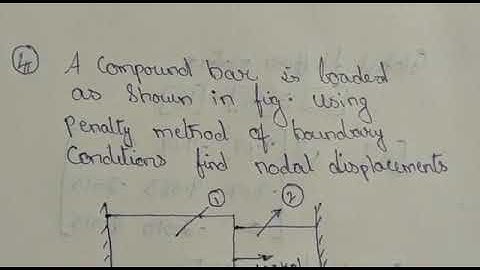 ④ A Compound bar is loaded
as shown in fig. using
Penalty method of boundary
Conditions find nodal displacements
① ②